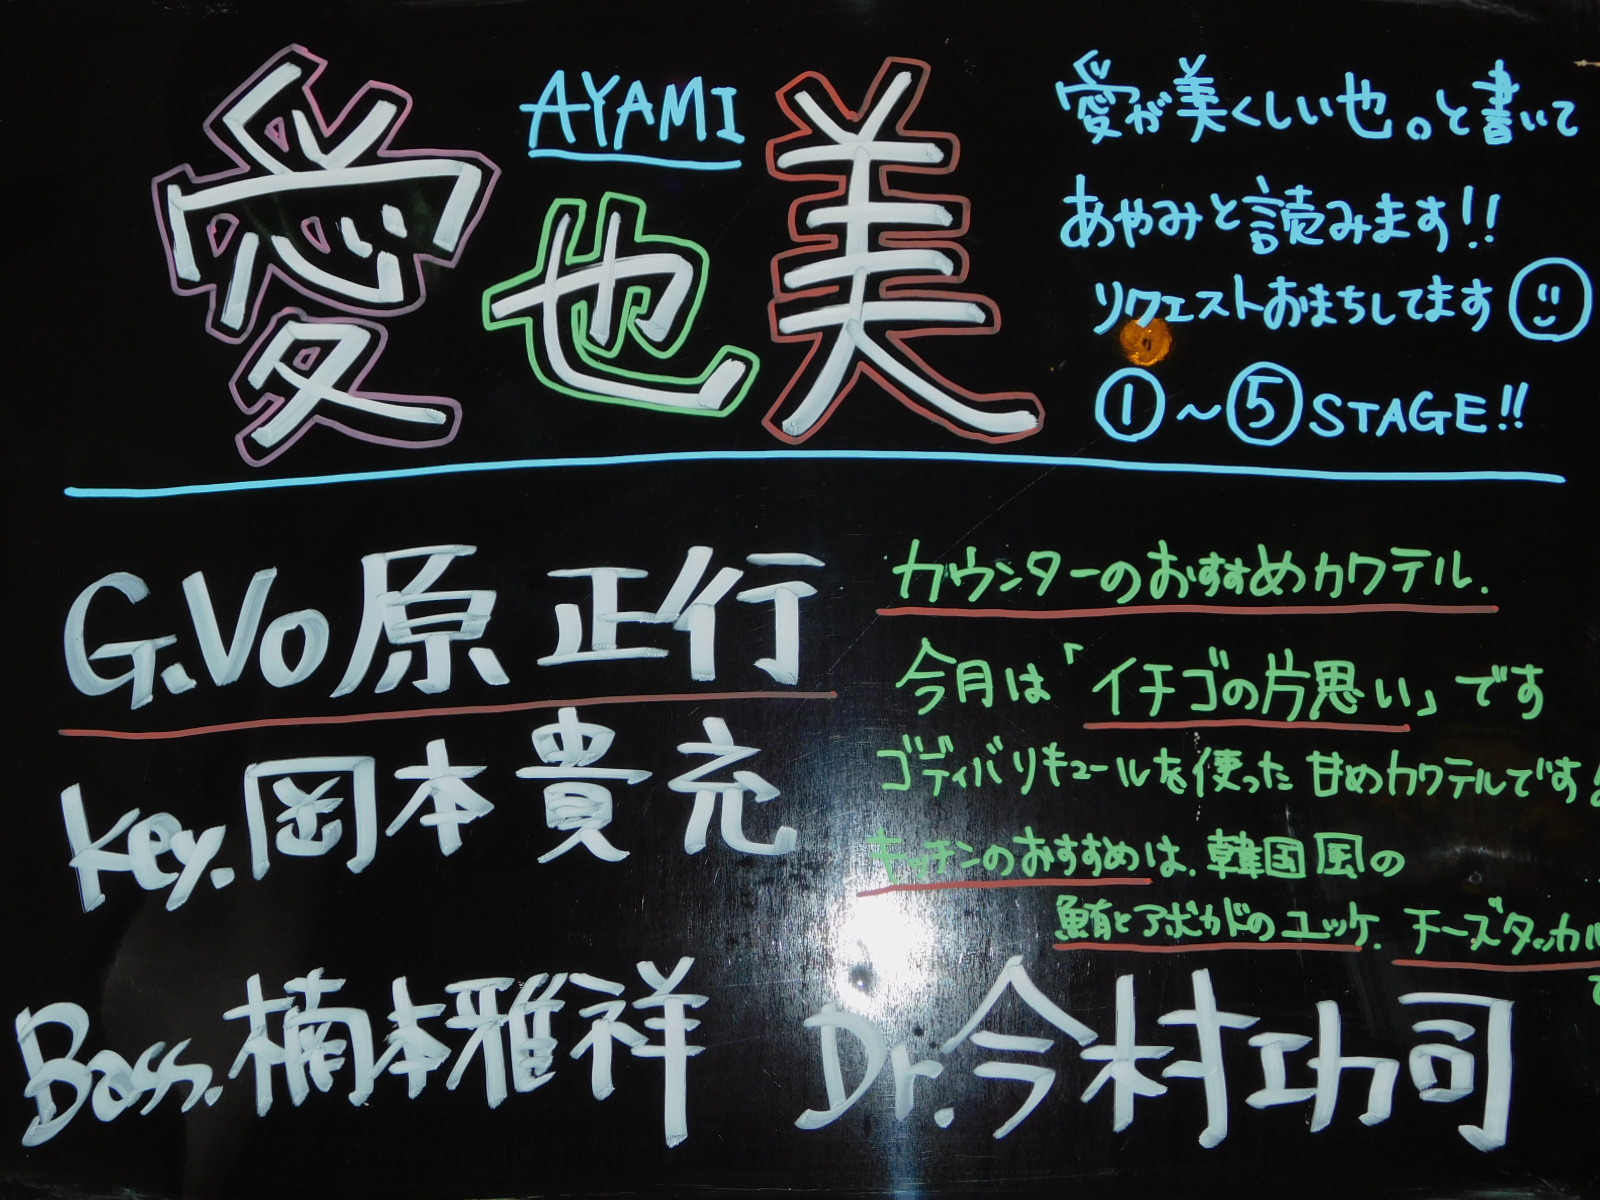 愛也美
AYAMI
愛が美くしい也。と書いて
あやみと読みます!!
リクエストおまちしてます
①～⑤STAGE!!
G.Vo 原 正行
Key. 岡本 貴充
Bass. 楠本雅祥
Dr. 今村功司
カウンターのおすすめカクテル.
今月は「イチゴの片思い」です
ゴディバリキュールを使った甘めカクテルです!
キッチンのおすすめは、韓国風の
鮪とアボカドのユッケ、チーズタッカル